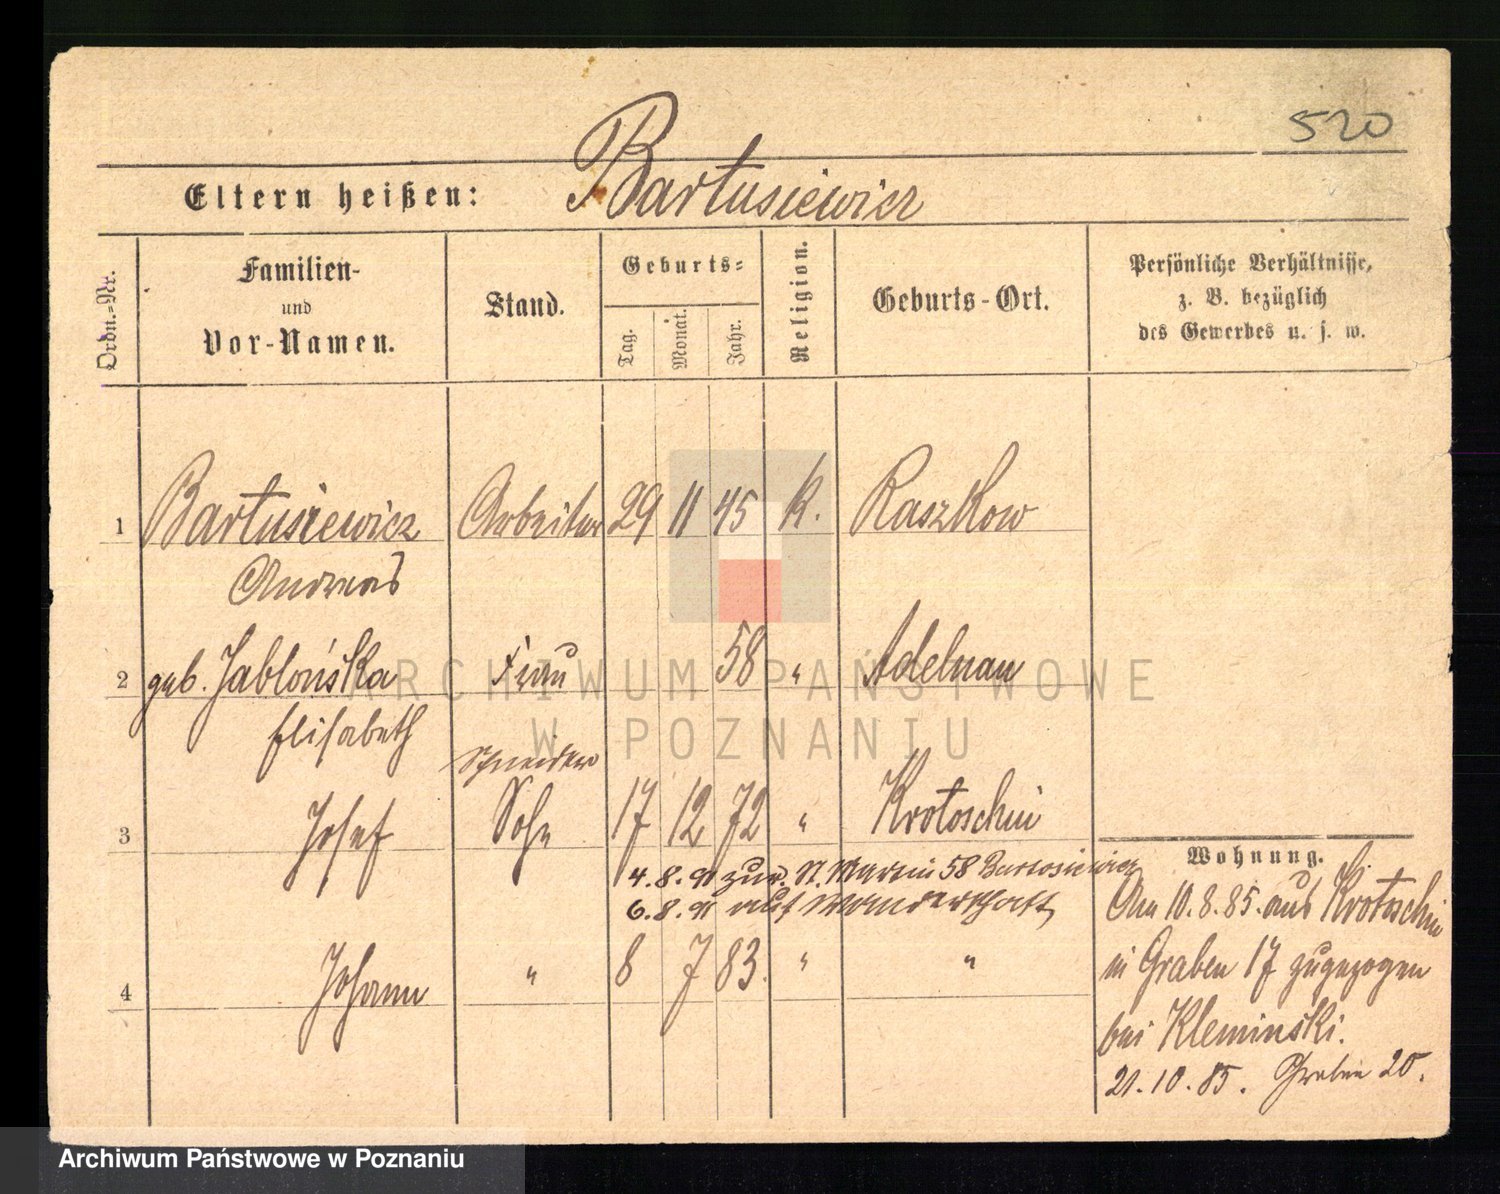 520
Eltern heißen: Bartusiewicz
Ordn.-Nr.
Familien-
und
Vor-Namen.
Stand.
Geburts-
Tag.
Monat.
Jahr.
Religion.
Geburts-Ort.
Persönliche Verhältnisse,
z. B. bezüglich
des Gewerbes u. s. w.
1 Bartusiewicz Arbeiter 29 11 45 k. Raszkow
Andreas
2 geb. Jabłońska Frau 58 " Adelnau
Elisabeth
Schneider
3 Josef Sohn 17 12 72 " Krotoschin
4.8.91 zur. St. Martin 58 Bartosiewicz
6.8.91 auf Wanderschaft
4 Johann " 8 7 83. " "
Wohnung.
Am 10.8.85. aus Krotoschin
in Graben 17 zugezogen
bei Kleminski.
21.10.85. Graben 20.
ARCHIWUM PAŃSTWOWE
W POZNANIU
Archiwum Państwowe w Poznaniu